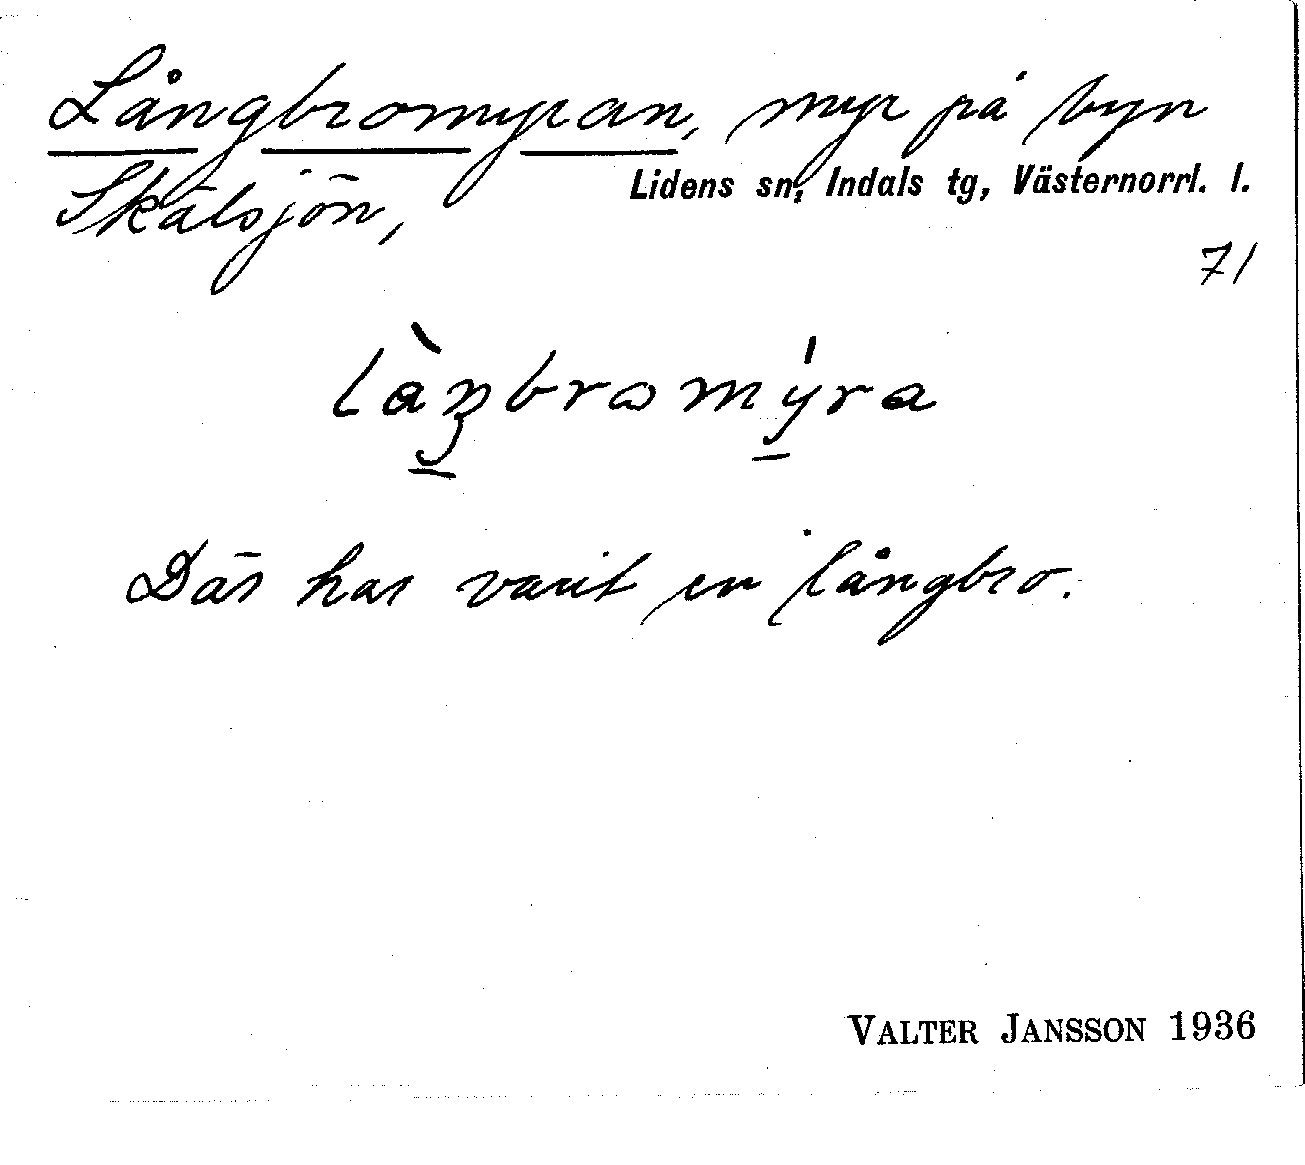 Långbromyran, myr på byn
Lidens sn, Indals tg, Västernorrl. l.
Skälsjön,
71
làŋbromýra
Där har varit en långbro.
VALTER JANSSON 1936